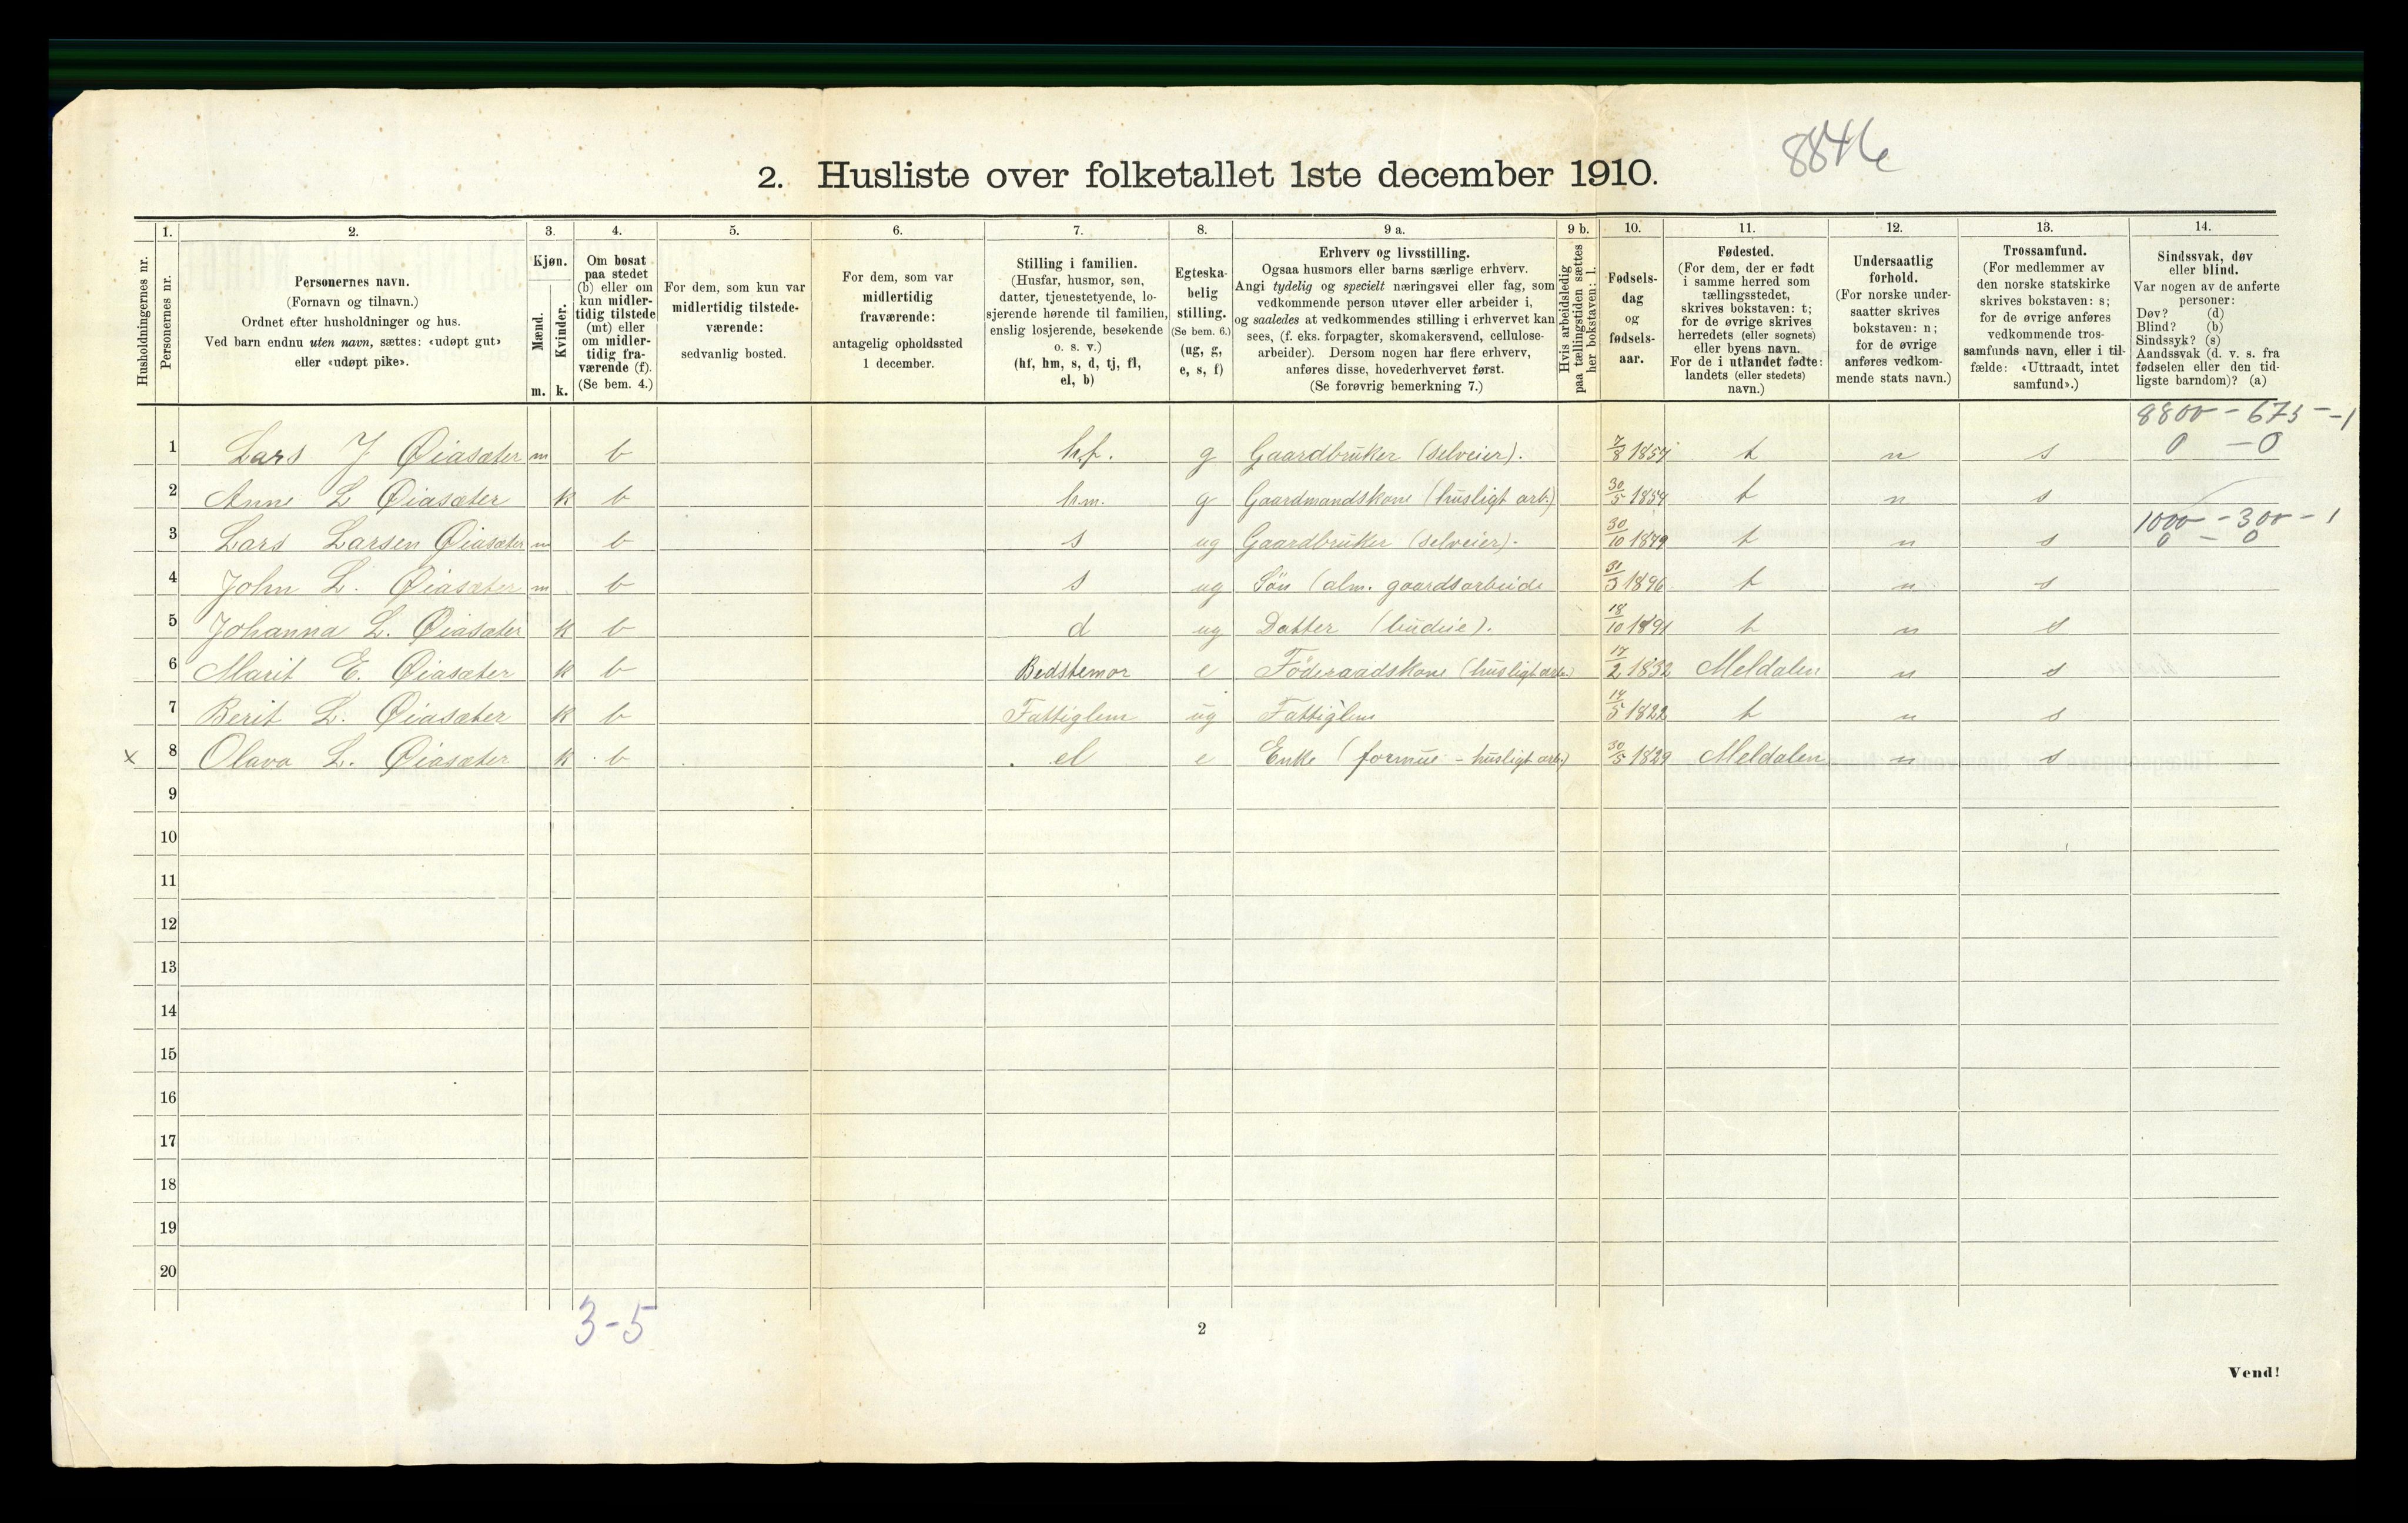 8846
2. Husliste over folketallet 1ste december 1910.
Husholdningernes nr.
1.
Personernes nr.
2.
Personernes navn.
(Fornavn og tilnavn.)
Ordnet efter husholdninger og hus.
Ved barn endnu uten navn, sættes: «udøpt gut»
eller «udøpt pike».
3.
Kjøn.
Mænd.
Kvinder.
m. k.
4.
Om bosat
paa stedet
(b) eller om
kun midler-
tidig tilstede
(mt) eller
om midler-
tidig fra-
værende (f).
(Se bem. 4.)
5.
For dem, som kun var
midlertidig tilstede-
værende:
sedvanlig bosted.
6.
For dem, som var
midlertidig
fraværende:
antagelig opholdssted
1 december.
7.
Stilling i familien.
(Husfar, husmor, søn,
datter, tjenestetyende, lo-
sjerende hørende til familien,
enslig losjerende, besøkende
o. s. v.)
(hf, hm, s, d, tj, fl,
el, b)
8.
Egteska-
belig
stilling.
(Se bem. 6.)
(ug, g,
e, s, f)
9 a.
Erhverv og livsstilling.
Ogsaa husmors eller barns særlige erhverv.
Angi tydelig og specielt næringsvei eller fag, som
vedkommende person utøver eller arbeider i,
og saaledes at vedkommendes stilling i erhvervet kan
sees, (f. eks. forpagter, skomakersvend, cellulose-
arbeider). Dersom nogen har flere erhverv,
anføres disse, hovederhvervet først.
(Se forøvrig bemerkning 7.)
9 b.
Hvis arbeidsledig
paa tællingstiden sættes
her bokstaven: l.
10.
Fødsels-
dag
og
fødsels-
aar.
11.
Fødested.
(For dem, der er født
i samme herred som
tællingsstedet,
skrives bokstaven: t;
for de øvrige skrives
herredets (eller sognets)
eller byens navn.
For de i utlandet fødte:
landets (eller stedets)
navn.)
12.
Undersaatlig
forhold.
(For norske under-
saatter skrives
bokstaven: n;
for de øvrige
anføres vedkom-
mende stats navn.)
13.
Trossamfund.
(For medlemmer av
den norske statskirke
skrives bokstaven: s;
for de øvrige anføres
vedkommende tros-
samfunds navn, eller i til-
fælde: «Uttraadt, intet
samfund».)
14.
Sindssvak, døv
eller blind.
Var nogen av de anførte
personer:
Døv? (d)
Blind? (b)
Sindssyk? (s)
Aandssvak (d. v. s. fra
fødselen eller den tid-
ligste barndom)? (a)
8800 - 675 - 1
1 Lars J Øiasæter m b h.f. g Gaardbruker (selveier). 7/8 1857 t n s 0 - 0
2 Anne L Øiasæter k b h.m. g Gaardmandskone (husligt arb.) 30/5 1859 t n s
1000 - 300 - 1
3 Lars Larsen Øiasæter m b s ug Gaardbruker (selveier). 30/10 1879 t n s 0 - 0
4 John L. Øiasæter m b s ug Søn (alm. gaardsarbeide 31/3 1896 t n s
5 Johanna L. Øiasæter k b d ug Datter (budeie). 18/10 1891 t n s
6 Marit E. Øiasæter k b Bedstemor e Föderaadskone (husligt arb.) 17/2 1832 Meldalen n s
7 Berit L. Øiasæter k b Fattiglem ug Fattiglem 14/5 1822 t n s
x 8 Olava L. Øiasæter k b el e Enke (formue - husligt arb.) 30/5 1829 Meldalen n s
9
10
11
12
13
14
15
16
17
18
19
20
3-5
2
Vend!